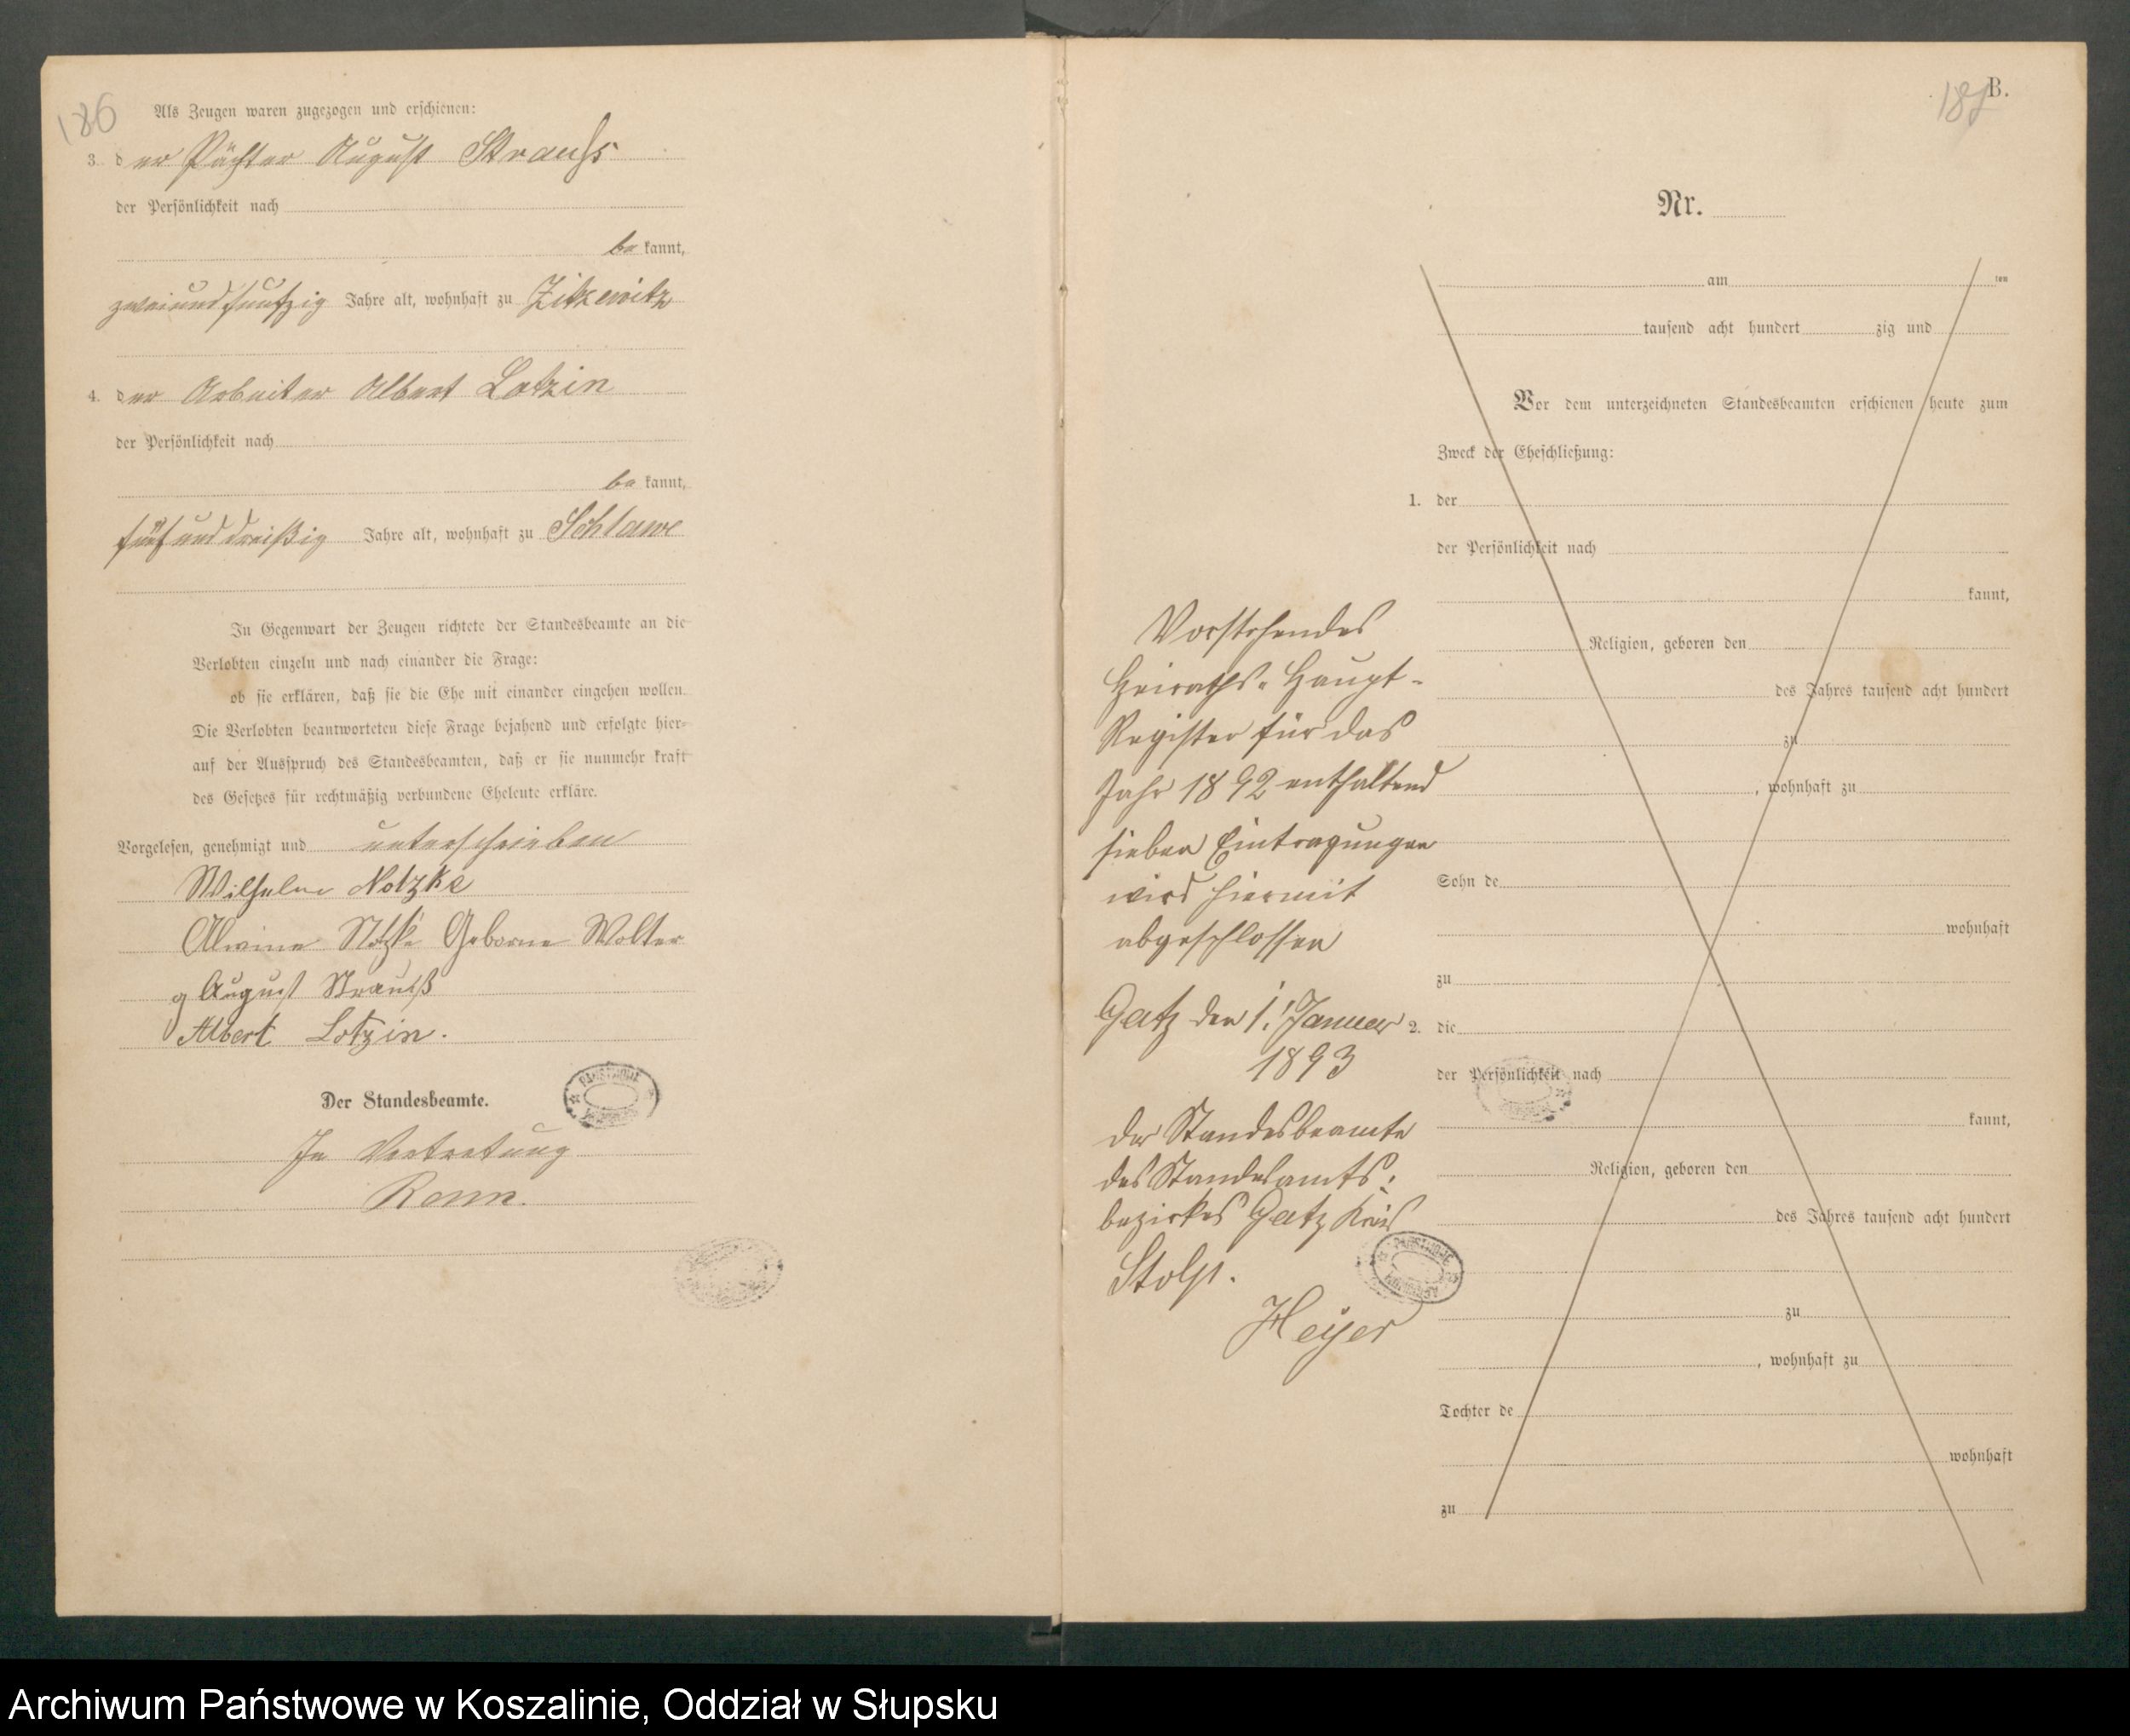 186
Als Zeugen waren zugezogen und erschienen:
3. der Pächter August Strauß
der Persönlichkeit nach
bekannt,
zweiundfünfzig Jahre alt, wohnhaft zu Zitzewitz
4. der Arbeiter Albert Lotzin
der Persönlichkeit nach
bekannt,
fünf und dreißig Jahre alt, wohnhaft zu Schlawe
In Gegenwart der Zeugen richtete der Standesbeamte an die
Verlobten einzeln und nach einander die Frage:
ob sie erklären, daß sie die Ehe mit einander eingehen wollen.
Die Verlobten beantworteten diese Frage bejahend und erfolgte hier-
auf der Ausspruch des Standesbeamten, daß er sie nunmehr kraft
des Gesetzes für rechtmäßig verbundene Eheleute erkläre.
Vorgelesen, genehmigt und unterschrieben
Wilhelm Notzke
Alwine Notzke Geborne Wolter
August Strauß
Albert Lotzin.
Der Standesbeamte.
In Vertretung
187 B.
Nr.
am ten
tausend acht hundert zig und
Vor dem unterzeichneten Standesbeamten erschienen heute zum
Zweck der Eheschließung:
1. der
der Persönlichkeit nach
kannt,
Religion, geboren den
des Jahres tausend acht hundert
zu
, wohnhaft zu
Sohn de
wohnhaft
zu
2. die
der Persönlichkeit nach
kannt,
Religion, geboren den
des Jahres tausend acht hundert
zu
, wohnhaft zu
Tochter de
wohnhaft
zu
Vorstehendes
Heiraths-Haupt-
Register für das
Jahr 1892 enthaltend
sieben Eintragungen
wird hiermit
abgeschlossen
Gatz den 1. Januar
1893
Der Standesbeamte
des Standesamts-
bezirkes Gatz Kreis
Stolp.
Heyer
Archiwum Państwowe w Koszalinie, Oddział w Słupsku